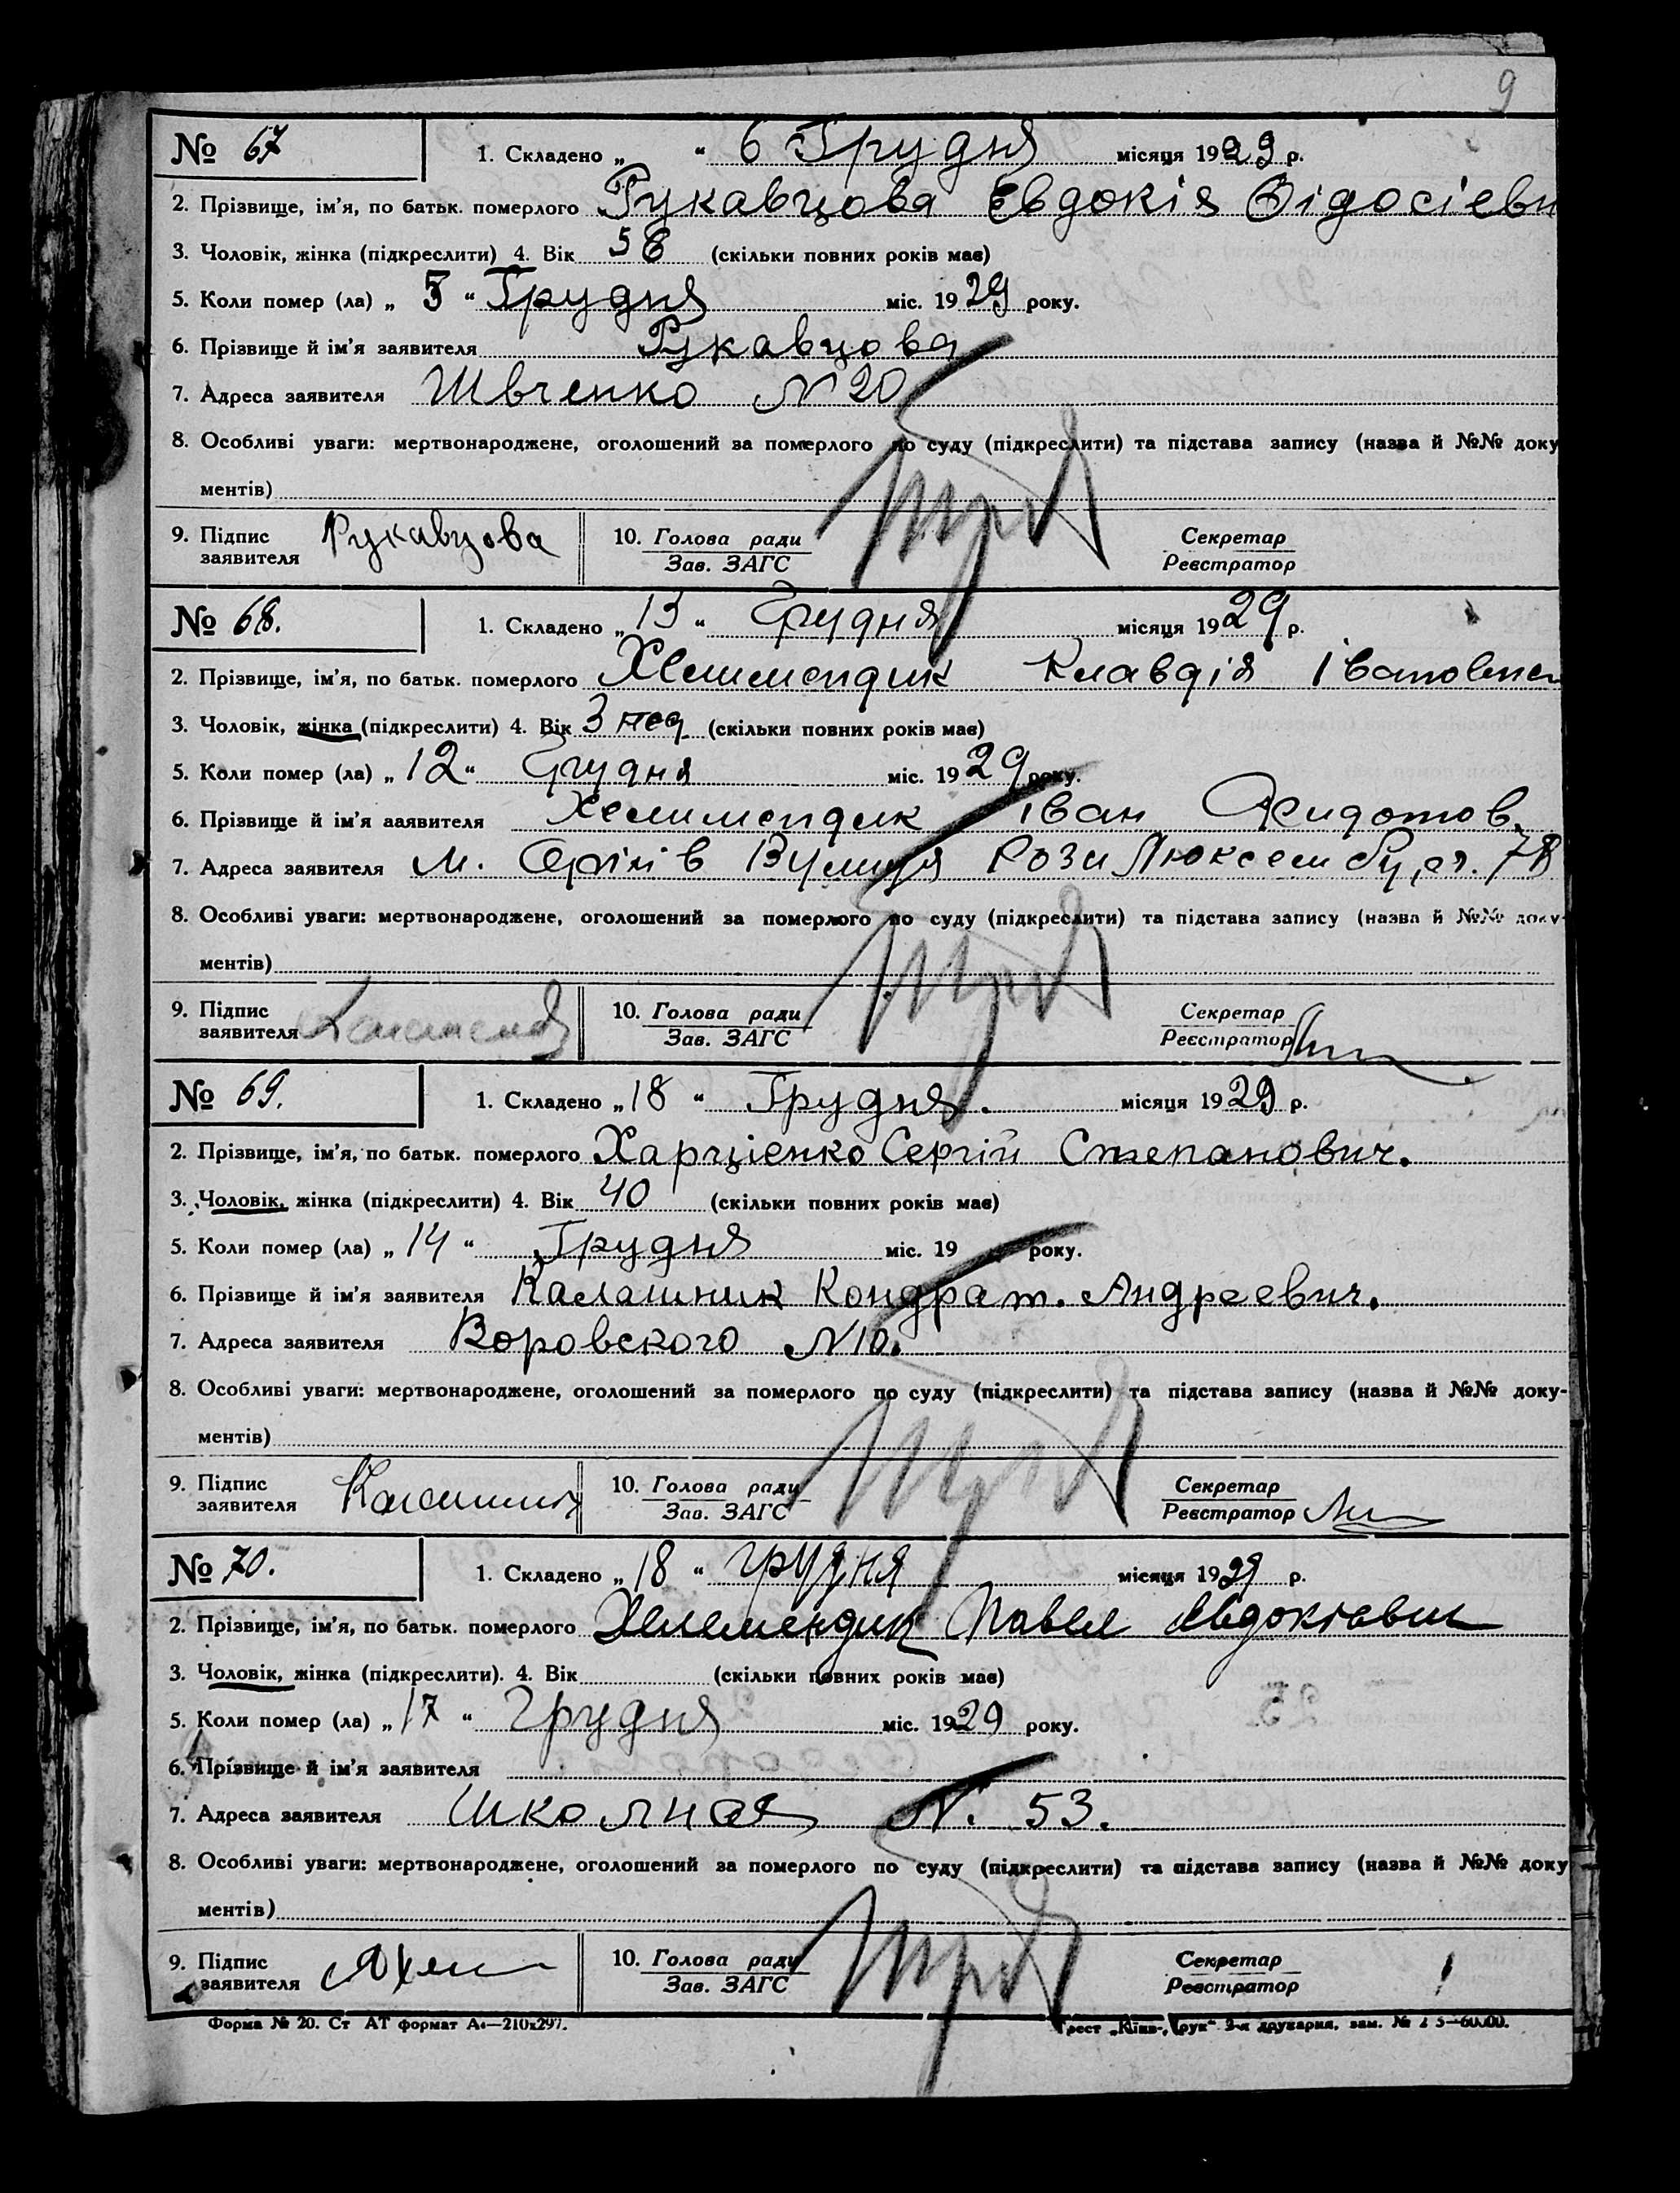 9
№ 67
1. Складено „ “ 6 Грудня місяця 1929 р.
2. Прізвище, ім'я, по батьк. померлого Рукавцова Євдокія Фідосієвн
3. Чоловік, жінка (підкреслити) 4. Вік 58 (скільки повних років має)
5. Коли помер (ла) „ 5 “ Грудня міс. 1929 року.
6. Прізвище й ім'я заявителя Рукавцова
7. Адреса заявителя Швченко N 20
8. Особливі уваги: мертвонароджене, оголошений за померлого по суду (підкреслити) та підстава запису (назва й №№ доку
ментів)
9. Підпис заявителя Рукавцова 10. Голова ради Зав. ЗАГС Секретар Реєстратор
№ 68.
1. Складено „ 13 “ Грудня місяця 1929 р.
2. Прізвище, ім'я, по батьк. померлого Хелимендик Клавдія Івановна
3. Чоловік, жінка (підкреслити) 4. Вік 3 нед (скільки повних років має)
5. Коли помер (ла) „ 12 “ Грудня міс. 1929 року.
6. Прізвище й ім'я заявителя Хелимендик Іван
7. Адреса заявителя м. Вулиця Рози Люксембург. 78
8. Особливі уваги: мертвонароджене, оголошений за померлого по суду (підкреслити) та підстава запису (назва й №№ доку-
ментів)
9. Підпис заявителя 10. Голова ради Зав. ЗАГС Секретар Реєстратор
№ 69.
1. Складено „ 18 “ Грудня. місяця 1929 р.
2. Прізвище, ім'я, по батьк. померлого Харцієнко Сергій Степанович.
3. Чоловік, жінка (підкреслити) 4. Вік 40 (скільки повних років має)
5. Коли помер (ла) „ 14 “ Грудня міс. 19 року.
6. Прізвище й ім'я заявителя Калашник Кондрат. Андреевич.
7. Адреса заявителя Воровского N 10.
8. Особливі уваги: мертвонароджене, оголошений за померлого по суду (підкреслити) та підстава запису (назва й №№ доку-
ментів)
9. Підпис заявителя Калашник 10. Голова ради Зав. ЗАГС Секретар Реєстратор
№ 70.
1. Складено „ 18 “ грудня місяця 1929 р.
2. Прізвище, ім'я, по батьк. померлого Хелемендик Павел Евдокіевич
3. Чоловік, жінка (підкреслити). 4. Вік (скільки повних років має)
5. Коли помер (ла) „ 17 “ Грудня міс. 1929 року.
6. Прізвище й ім'я заявителя
7. Адреса заявителя Школная N. 53.
8. Особливі уваги: мертвонароджене, оголошений за померлого по суду (підкреслити) та підстава запису (назва й №№ доку
ментів)
9. Підпис заявителя 10. Голова ради Зав. ЗАГС Секретар Реєстратор
Форма № 20. Ст АТ формат А4—210х297. Трест „Київ-Друк“ 3-я друкарня, зам. №